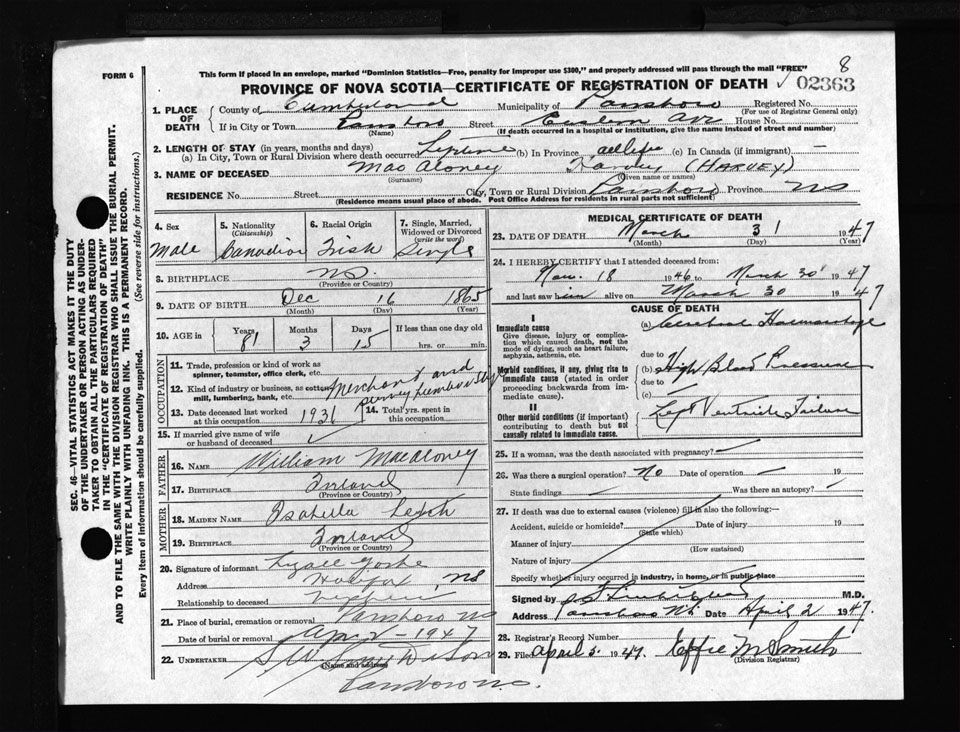 8
FORM 6
This form if placed in an envelope, marked "Dominion Statistics—Free, penalty for improper use $300," and properly addressed will pass through the mail "FREE"
PROVINCE OF NOVA SCOTIA—CERTIFICATE OF REGISTRATION OF DEATH
02363
1. PLACE OF DEATH
County of Cumberland Municipality of Parrsboro Registered No.
(For use of Registrar General only)
If in City or Town Parrsboro Street Eastern Ave House No.
(Name) (If death occurred in a hospital or institution, give the name instead of street and number)
2. LENGTH OF STAY (in years, months and days)
(a) In City, Town or Rural Division where death occurred Lifetime (b) In Province all life (c) In Canada (if immigrant) —
3. NAME OF DECEASED MacAloney Harvey (HARVEY)
(Surname) (Given name or names)
RESIDENCE No. Street City, Town or Rural Division Parrsboro Province NS
(Residence means usual place of abode. Post Office Address for residents in rural parts not sufficient)
4. Sex
Male
5. Nationality
(Citizenship)
Canadian
6. Racial Origin
Irish
7. Single, Married, Widowed or Divorced
(write the word)
Single
8. BIRTHPLACE NS.
(Province or Country)
9. DATE OF BIRTH Dec 16 1865
(Month) (Day) (Year)
10. AGE in
Years Months Days If less than one day old
81 3 15 hrs. or min.
OCCUPATION
11. Trade, profession or kind of work as spinner, teamster, office clerk, etc.
12. Kind of industry or business, as cotton mill, lumbering, bank, etc.
Merchant and
13. Date deceased last worked at this occupation 1931
14. Total yrs. spent in this occupation
15. If married give name of wife or husband of deceased
FATHER
16. NAME William MacAloney
17. BIRTHPLACE Ireland
(Province or Country)
MOTHER
18. MAIDEN NAME Isabella
19. BIRTHPLACE Ireland
(Province or Country)
20. Signature of informant
Address Halifax NS
Relationship to deceased Nephew
21. Place of burial, cremation or removal Parrsboro NS
Date of burial or removal Apr 2 - 1947
22. UNDERTAKER
(Name and address)
Parrsboro N.S.
MEDICAL CERTIFICATE OF DEATH
23. DATE OF DEATH March 31 1947
(Month) (Day) (Year)
24. I HEREBY CERTIFY that I attended deceased from:
Nov. 18 1946 to March 30 1947
and last saw him alive on March 30 1947
CAUSE OF DEATH
I
Immediate cause
Give disease, injury or complication which caused death, not the mode of dying, such as heart failure, asphyxia, asthenia, etc.
(a) Cerebral Haemorrhage
due to
Morbid conditions, if any, giving rise to immediate cause (stated in order proceeding backwards from immediate cause).
(b) High Blood Pressure
due to
(c)
II
Other morbid conditions (if important) contributing to death but not causally related to immediate cause.
Left Ventricle Failure
25. If a woman, was the death associated with pregnancy?
26. Was there a surgical operation? No Date of operation 19
State findings Was there an autopsy?
27. If death was due to external causes (violence) fill in also the following:—
Accident, suicide or homicide? Date of injury 19
(State which)
Manner of injury
(How sustained)
Nature of injury
Specify whether injury occurred in industry, in home, or in public place
Signed by M.D.
Address Parrsboro NS Date April 2 1947.
28. Registrar's Record Number
29. Filed April 5. 1947. Effie M Smith
(Division Registrar)
SEC. 46—VITAL STATISTICS ACT MAKES IT THE DUTY
OF THE UNDERTAKER OR PERSON ACTING AS UNDERTAKER TO OBTAIN ALL THE PARTICULARS REQUIRED
IN THE "CERTIFICATE OF REGISTRATION OF DEATH"
AND TO FILE THE SAME WITH THE DIVISION REGISTRAR WHO SHALL ISSUE THE BURIAL PERMIT.
WRITE PLAINLY WITH UNFADING INK. THIS IS A PERMANENT RECORD.
Every item of information should be carefully supplied. (See reverse side for instructions.)